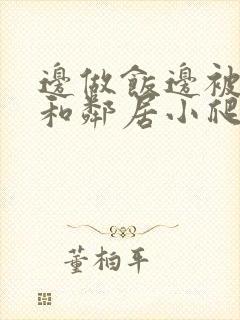 邊做飯邊被
和鄰居小爬
董柏平